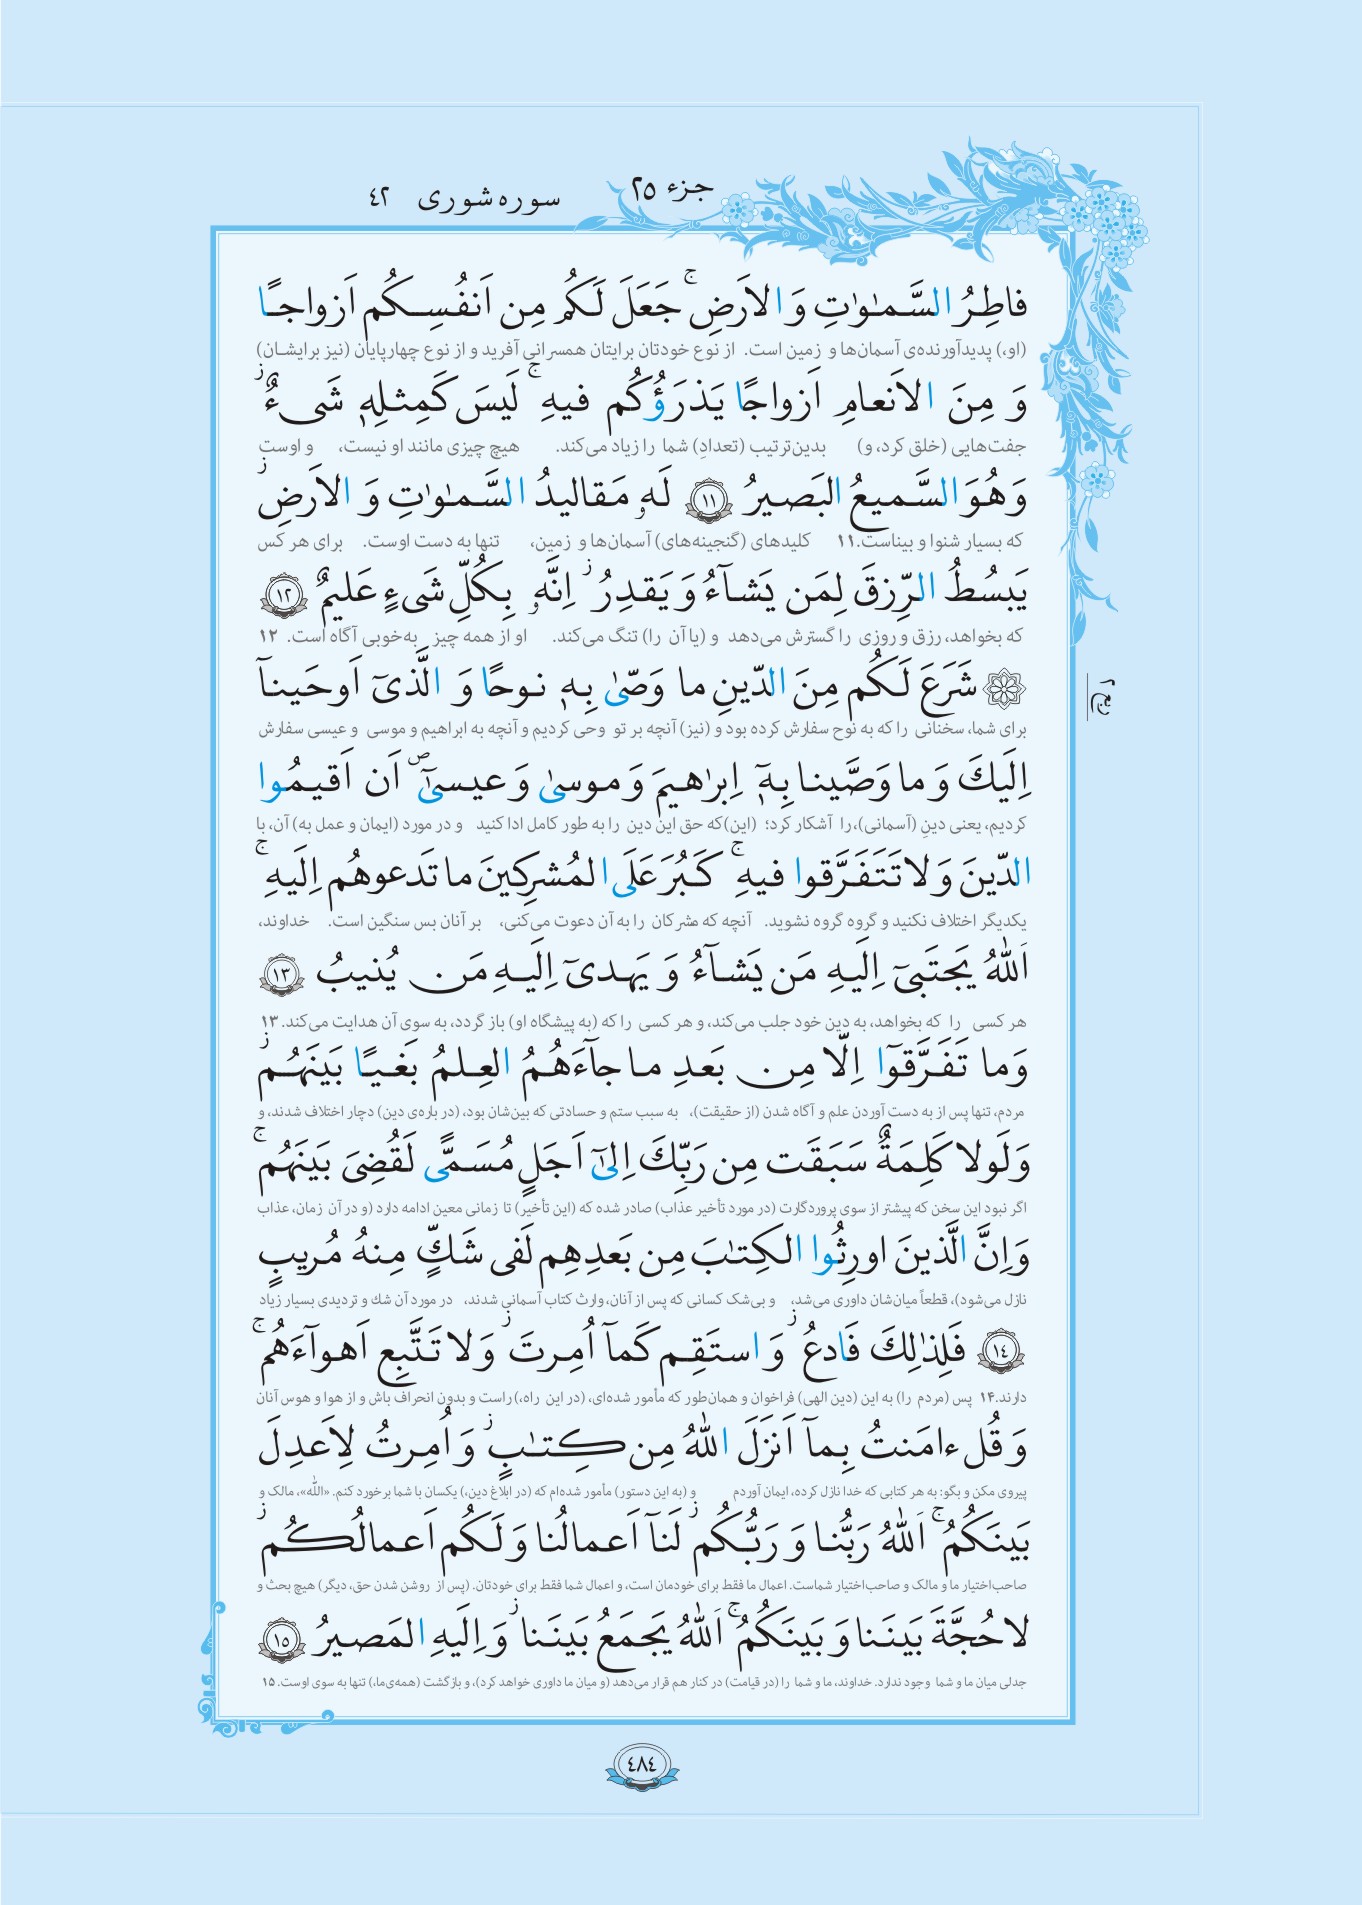 جزء ۲۵
سوره شوری ۴۲
فاطِرُ السَّمٰوٰتِ وَ الاَرضِ ۚ جَعَلَ لَكُم مِن اَنفُسِكُم اَزواجًا
(او،) پدیدآورنده‌ی آسمان‌ها و زمین است. از نوع خودتان برایتان همسرانی آفرید و از نوع چهارپایان (نیز برایشان)
وَ مِنَ الاَنعامِ اَزواجًا يَذرَؤُكُم فيهِ ۚ لَيسَ كَمِثلِهٖ شَىءٌ ز
جفت‌هایی (خلق کرد، و) بدین‌ترتیب (تعدادِ) شما را زیاد می‌کند. هیچ چیزی مانند او نیست، و اوست
وَ هُوَ السَّميعُ البَصيرُ ١١ لَهٗ مَقاليدُ السَّمٰوٰتِ وَ الاَرضِ ز
که بسیار شنوا و بیناست.۱۱ کلیدهای (گنجینه‌های) آسمان‌ها و زمین، تنها به دست اوست. برای هر کس
يَبسُطُ الرِّزقَ لِمَن يَشآءُ وَ يَقدِرُ ز اِنَّهٗ بِكُلِّ شَىءٍ عَليمٌ ١٢
که بخواهد، رزق و روزی را گسترش می‌دهد و (یا آن را) تنگ می‌کند. او از همه چیز به‌خوبی آگاه است. ۱۲
۞ شَرَعَ لَكُم مِنَ الدّينِ ما وَصّىٰ بِهٖ نوحًا وَ الَّذىٓ اَوحَينآ
ربع ۲
برای شما، سخنانی را که به نوح سفارش کرده بود و (نیز) آنچه بر تو وحی کردیم و آنچه به ابراهیم و موسی و عیسی سفارش
اِلَيكَ وَ ما وَصَّينا بِهٖٓ اِبرٰهيمَ وَ موسىٰ وَ عيسىٰٓ ۖ اَن اَقيمُوا
کردیم، یعنی دینِ (آسمانی)، را آشکار کرد؛ (این)که حق این دین را به طور کامل ادا کنید و در مورد (ایمان و عمل به) آن، با
الدّينَ وَ لا تَتَفَرَّقوا فيهِ ۚ كَبُرَ عَلَى المُشرِكينَ ما تَدعوهُم اِلَيهِ ۚ
یکدیگر اختلاف نکنید و گروه گروه نشوید. آنچه که مشرکان را به آن دعوت می‌کنی، بر آنان بس سنگین است. خداوند،
اَللّٰهُ يَجتَبىٓ اِلَيهِ مَن يَشآءُ وَ يَهدىٓ اِلَيهِ مَن يُنيبُ ١٣
هر کسی را که بخواهد، به دین خود جلب می‌کند، و هر کسی را که (به پیشگاه او) باز گردد، به سوی آن هدایت می‌کند. ۱۳
وَ ما تَفَرَّقوٓا اِلّا مِن بَعدِ ما جآءَهُمُ العِلمُ بَغيًا بَينَهُم ز
مردم، تنها پس از به دست آوردن علم و آگاه شدن (از حقیقت)، به سبب ستم و حسادتی که بین‌شان بود، (در باره‌ی دین) دچار اختلاف شدند، و
وَ لَولا كَلِمَةٌ سَبَقَت مِن رَبِّكَ اِلىٰٓ اَجَلٍ مُسَمًّى لَقُضِىَ بَينَهُم ۚ
اگر نبود این سخن که پیشتر از سوی پروردگارت (در مورد تأخیر عذاب) صادر شده که (این تأخیر) تا زمانی معین ادامه دارد (و در آن زمان، عذاب
وَ اِنَّ الَّذينَ اورِثُوا الكِتٰبَ مِن بَعدِهِم لَفى شَكٍّ مِنهُ مُريبٍ
نازل می‌شود)، قطعاً میان‌شان داوری می‌شد، و بی‌شک کسانی که پس از آنان، وارث کتاب آسمانی شدند، در مورد آن شك و تردیدی بسیار زیاد
١٤ فَلِذٰلِكَ فَادعُ ز وَ استَقِم كَمآ اُمِرتَ ز وَ لا تَتَّبِع اَهوآءَهُم ۚ
دارند.۱۴ پس (مردم را) به این (دین الهی) فراخوان و همان‌طور که مأمور شده‌ای، (در این راه،) راست و بدون انحراف باش و از هوا و هوس آنان
وَ قُل ءامَنتُ بِمآ اَنزَلَ اللّٰهُ مِن كِتٰبٍ ز وَ اُمِرتُ لِاَعدِلَ
پیروی مکن و بگو: به هر کتابی که خدا نازل کرده، ایمان آوردم و (به این دستور) مأمور شده‌ام که (در ابلاغ دین،) یکسان با شما برخورد کنم. «اللّٰه»، مالک و
بَينَكُمُ ۚ اَللّٰهُ رَبُّنا وَ رَبُّكُم ز لَنآ اَعمالُنا وَ لَكُم اَعمالُكُم ز
صاحب‌اختیار ما و مالک و صاحب‌اختیار شماست. اعمال ما فقط برای خودمان است، و اعمال شما فقط برای خودتان. (پس از روشن شدن حق، دیگر) هیچ بحث و
لا حُجَّةَ بَينَنا وَ بَينَكُمُ ۚ اَللّٰهُ يَجمَعُ بَينَنا ز وَ اِلَيهِ المَصيرُ ١٥
جدلی میان ما و شما وجود ندارد. خداوند، ما و شما را (در قیامت) در کنار هم قرار می‌دهد (و میان ما داوری خواهد کرد)، و بازگشت (همه‌ی‌ما،) تنها به سوی اوست. ۱۵
٤٨٤